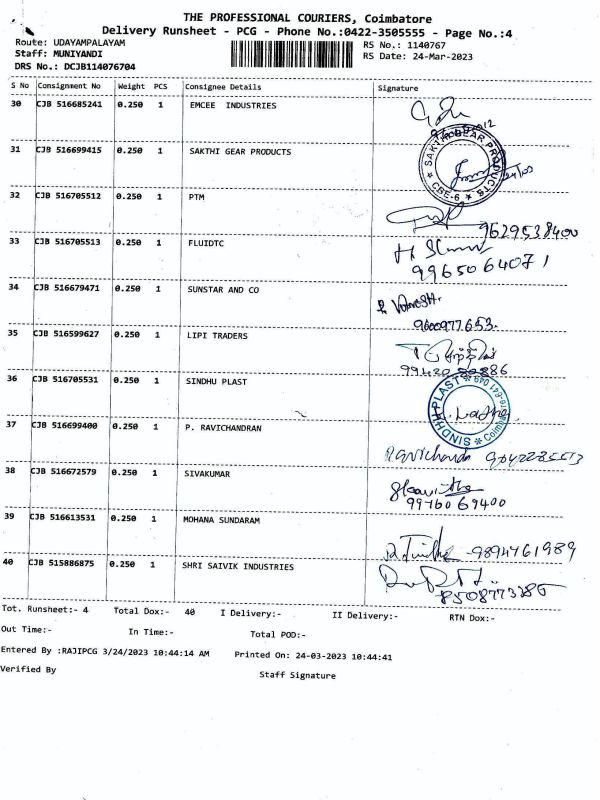 THE PROFESSIONAL COURIERS, Coimbatore
Delivery Runsheet - PCG - Phone No.:0422-3505555 - Page No.:4
Route: UDAYAMPALAYAM RS No.: 1140767
Staff: MUNIYANDI RS Date: 24-Mar-2023
DRS No.: DCJB114076704
S No Consignment No Weight PCS Consignee Details Signature
30 CJB 516685241 0.250 1 EMCEE INDUSTRIES
31 CJB 516699415 0.250 1 SAKTHI GEAR PRODUCTS
SAKTHI GEAR PRODUCTS
CBE-6
32 CJB 516705512 0.250 1 PTM
9629538400
33 CJB 516705513 0.250 1 FLUIDTC
9965064071
34 CJB 516679471 0.250 1 SUNSTAR AND CO
9600977653.
35 CJB 516599627 0.250 1 LIPI TRADERS
36 CJB 516705531 0.250 1 SINDHU PLAST
SINDHU PLAST
Coimbatore-641 049
37 CJB 516699400 0.250 1 P. RAVICHANDRAN
38 CJB 516672579 0.250 1 SIVAKUMAR
9976069400
39 CJB 516613531 0.250 1 MOHANA SUNDARAM
-9894761989
40 CJB 515886875 0.250 1 SHRI SAIVIK INDUSTRIES
8508773285
Tot. Runsheet:- 4 Total Dox:- 40 I Delivery:- II Delivery:- RTN Dox:-
Out Time:- In Time:- Total POD:-
Entered By :RAJIPCG 3/24/2023 10:44:14 AM Printed On: 24-03-2023 10:44:41
Verified By Staff Signature